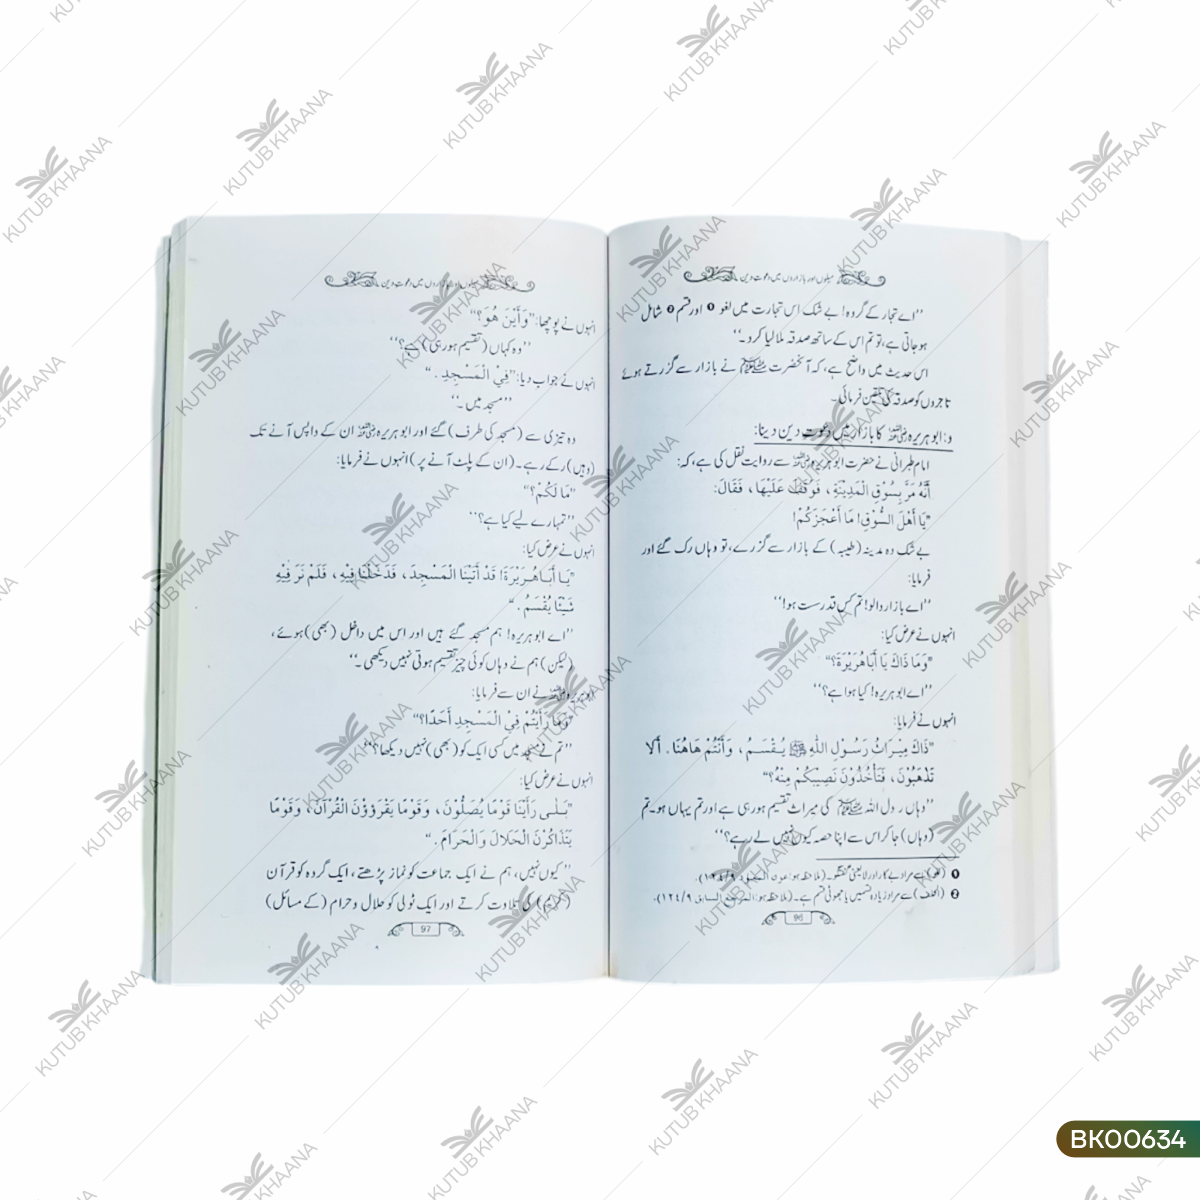 میلوں اور بازاروں میں دعوت دین
’’اے تجار کے گروہ! بے شک اس تجارت میں لغو ❶ اور قسم ❷ شامل
ہو جاتی ہے، تو تم اس کے ساتھ صدقہ ملا لیا کرو۔‘‘
اس حدیث میں واضح ہے، کہ آنحضرت ﷺ نے بازار سے گزرتے ہوئے
تاجروں کو صدقہ کی تلقین فرمائی۔
د: ابو ہریرہ رضی اللہ عنہ کا بازار میں دعوت دین دینا:
امام طبرانی نے حضرت ابو ہریرہ رضی اللہ عنہ سے روایت نقل کی ہے، کہ:
أَنَّهُ مَرَّ بِسُوْقِ الْمَدِيْنَةِ، فَوَقَفَ عَلَيْهَا، فَقَالَ:
"يَا أَهْلَ السُّوْقِ! مَا أَعْجَزَكُمْ!
بے شک وہ مدینہ (طیبہ) کے بازار سے گزرے، تو وہاں رک گئے اور
فرمایا:
’’اے بازار والو! تم کس قدر ست ہو!‘‘
انہوں نے عرض کیا:
"وَمَا ذَاكَ يَا أَبَاهُرَيْرَةَ؟"
’’اے ابو ہریرہ! کیا ہوا ہے؟‘‘
انہوں نے فرمایا:
"ذَاكَ مِيْرَاثُ رَسُوْلِ اللّٰهِ ﷺ يُقْسَمُ، وَأَنْتُمْ هَاهُنَا. أَلَا
تَذْهَبُوْنَ، فَتَأْخُذُوْنَ نَصِيْبَكُمْ مِنْهُ؟"
’’وہاں رسول اللہ ﷺ کی میراث تقسیم ہو رہی ہے اور تم یہاں ہو۔ تم
(وہاں) جا کر اس سے اپنا حصہ کیوں نہیں لے رہے؟‘‘
❶ (لغو) سے مراد بے کار اور لایعنی گفتگو۔ (ملاحظہ ہو: عون المعبود ١٢٤/٩).
❷ (الحلف) سے مراد زیادہ قسمیں یا جھوٹی قسم ہے۔ (ملاحظہ ہو: المرجع السابق ١٢٤/٩).
96
میلوں اور بازاروں میں دعوت دین
انہوں نے پوچھا: "وَأَيْنَ هُوَ؟"
’’وہ کہاں (تقسیم ہو رہی) ہے؟‘‘
انہوں نے جواب دیا: "فِي الْمَسْجِدِ."
’’مسجد میں۔‘‘
وہ تیزی سے (مسجد کی طرف) گئے اور ابو ہریرہ رضی اللہ عنہ ان کے واپس آنے تک
(وہیں) رکے رہے۔ (ان کے پلٹ آنے پر) انہوں نے فرمایا:
"مَا لَكُمْ؟"
’’تمہارے لیے کیا ہے؟‘‘
انہوں نے عرض کیا:
"يَا أَبَاهُرَيْرَةَ! قَدْ أَتَيْنَا الْمَسْجِدَ، فَدَخَلْنَا فِيْهِ، فَلَمْ نَرَ فِيْهِ
شَيْئًا يُقْسَمُ."
’’اے ابو ہریرہ! ہم مسجد گئے ہیں اور اس میں داخل (بھی) ہوئے،
(لیکن) ہم نے وہاں کوئی چیز تقسیم ہوتی نہیں دیکھی۔‘‘
ابو ہریرہ رضی اللہ عنہ نے ان سے فرمایا:
"وَمَا رَأَيْتُمْ فِي الْمَسْجِدِ أَحَدًا؟"
’’تم نے مسجد میں کسی ایک کو (بھی) نہیں دیکھا؟‘‘
انہوں نے عرض کیا:
"بَلٰى رَأَيْنَا قَوْمًا يُصَلُّوْنَ، وَقَوْمًا يَقْرَؤُوْنَ الْقُرْآنَ، وَقَوْمًا
يَتَذَاكَرُوْنَ الْحَلَالَ وَالْحَرَامَ."
’’کیوں نہیں، ہم نے ایک جماعت کو نماز پڑھتے، ایک گروہ کو قرآن
(کریم) کی تلاوت کرتے اور ایک ٹولی کو حلال و حرام (کے مسائل)
97
KUTUB KHAANA
BK00634